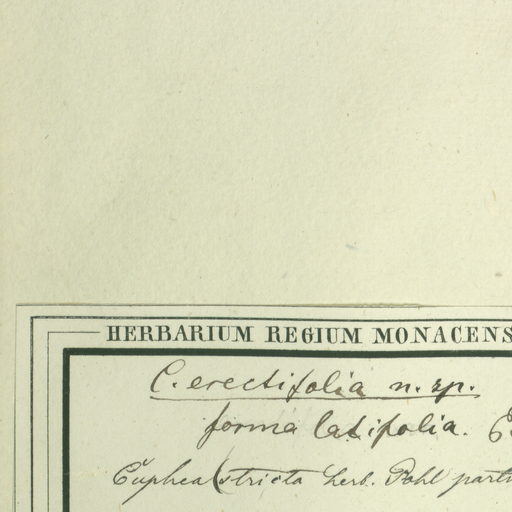 HERBARIUM REGIUM MONACENS
C. erectifolia n. sp.
forma latifolia.
Cuphea (stricta herb. Pohl part